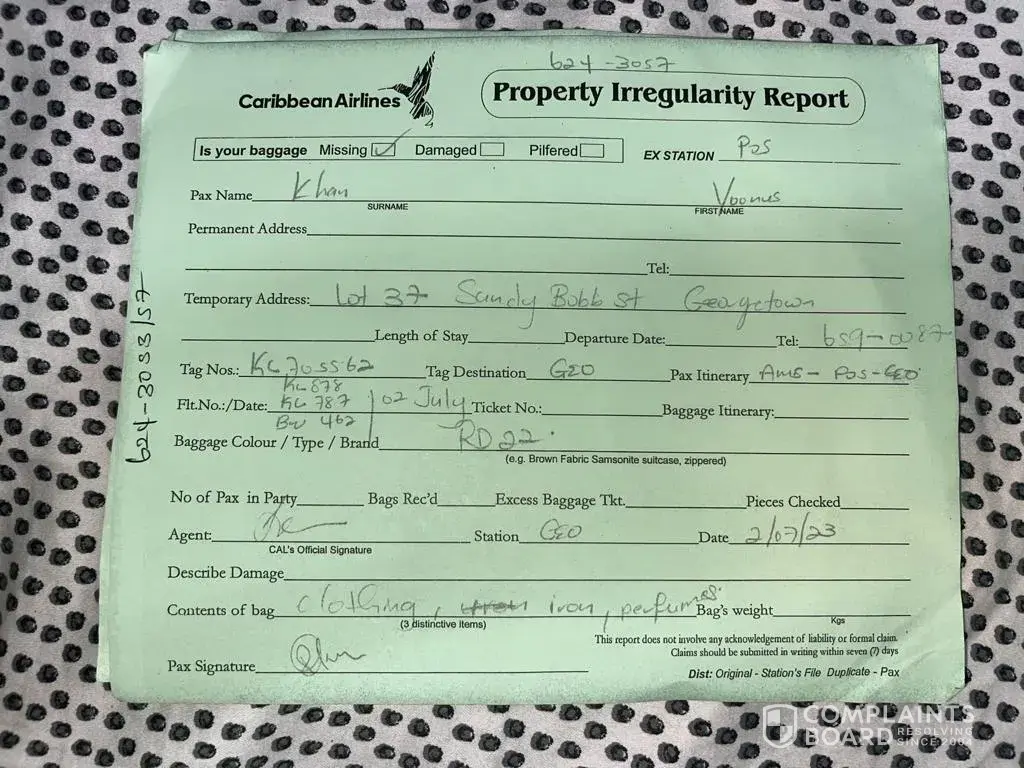 624-3057
Caribbean Airlines
Property Irregularity Report
Is your baggage Missing Damaged Pilfered EX STATION POS
Pax Name Khan
SURNAME FIRST NAME
Permanent Address
Tel:
Temporary Address: Lot 37 Sandy Bobb St Georgetown
Length of Stay Departure Date: Tel: 659-0087
Tag Nos.: KL705562 Tag Destination GEO Pax Itinerary AMS-POS-GEO
KL 878
Flt.No.:/Date: KL 787 02 July Ticket No.: Baggage Itinerary:
BW 462
Baggage Colour / Type / Brand RD22
(e.g. Brown Fabric Samsonite suitcase, zippered)
No of Pax in Party Bags Rec'd Excess Baggage Tkt. Pieces Checked
Agent: Station GEO Date 2/07/23
CAL's Official Signature
Describe Damage
Contents of bag clothing, iron, perfumes. Bag's weight
(3 distinctive items) Kgs
This report does not involve any acknowledgement of liability or formal claim.
Claims should be submitted in writing within seven (7) days
Pax Signature
Dist: Original - Station's File Duplicate - Pax
624-3053/57
COMPLAINTS
BOARD RESOLVING
SINCE 2004